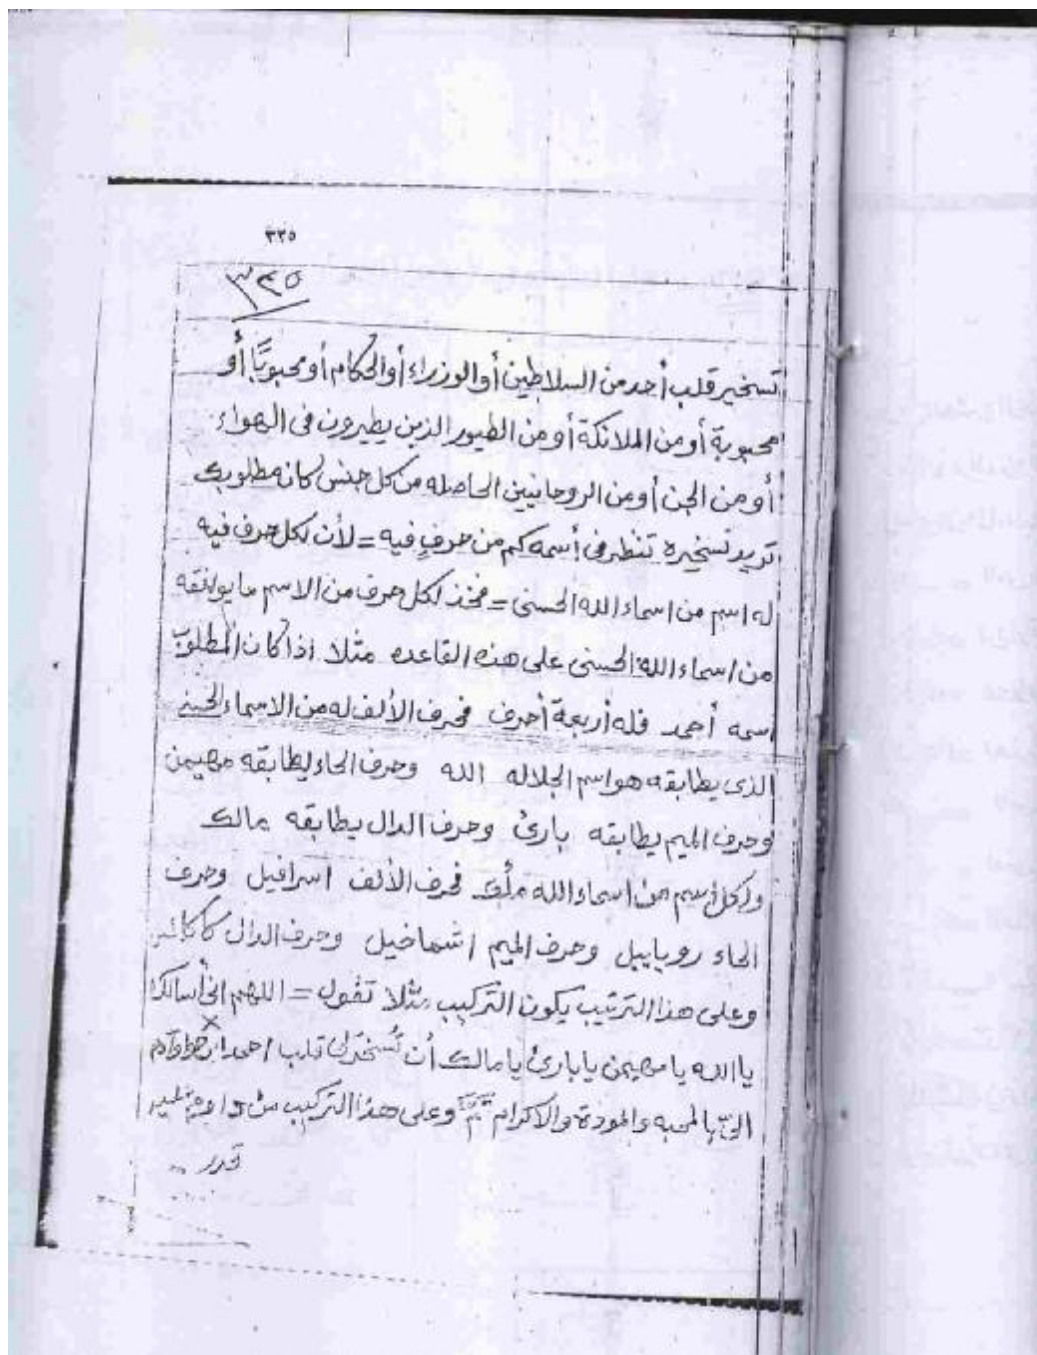 ٣٣٥
٣٣٥
تسخير قلب أحد من السلاطين أو الوزراء أو الحكام أو محبوبًا أو
محبوبة أو من الملائكة أو من الطيور الذين يطيرون فى الهواء
أو من الجن أو من الروحانيين الحاصله من كل جنس كانه مطلوبك
تريد تسخيره تنظر فى أسمه كم من حرفٍ فيه = لأن لكل حرف فيه
له اسم من اسماء الله الحسنى = فخذ لكل حرف من الاسم ما يوافقه
من اسماء الله الحسنى على هذه القاعده مثلا اذا كان المطلوب
اسمه أحمد فله أربعة أحرف فحرف الألف له من الاسماء الحسنى
الذى يطابقه هو اسم الجلاله الله وحرف الحاء يطابقه مهيمن
وحرف الميم يطابقه بارئ وحرف الدال يطابقه مالك
ولكل أسم من اسماء الله ملك فحرف الألف اسرافيل وحرف
الحاء روياييل وحرف الميم اشماخيل وحرف الدال
وعلى هذا الترتيب يكون التركيب مثلا تقول = اللهم انى أسالك
يا الله يا مهيمن يا بارئ يا مالك أن تُسخّر لى قلب احمد ابن
بالمحبه والمودة والاكرام وعلى هذا التركيب من
قدر